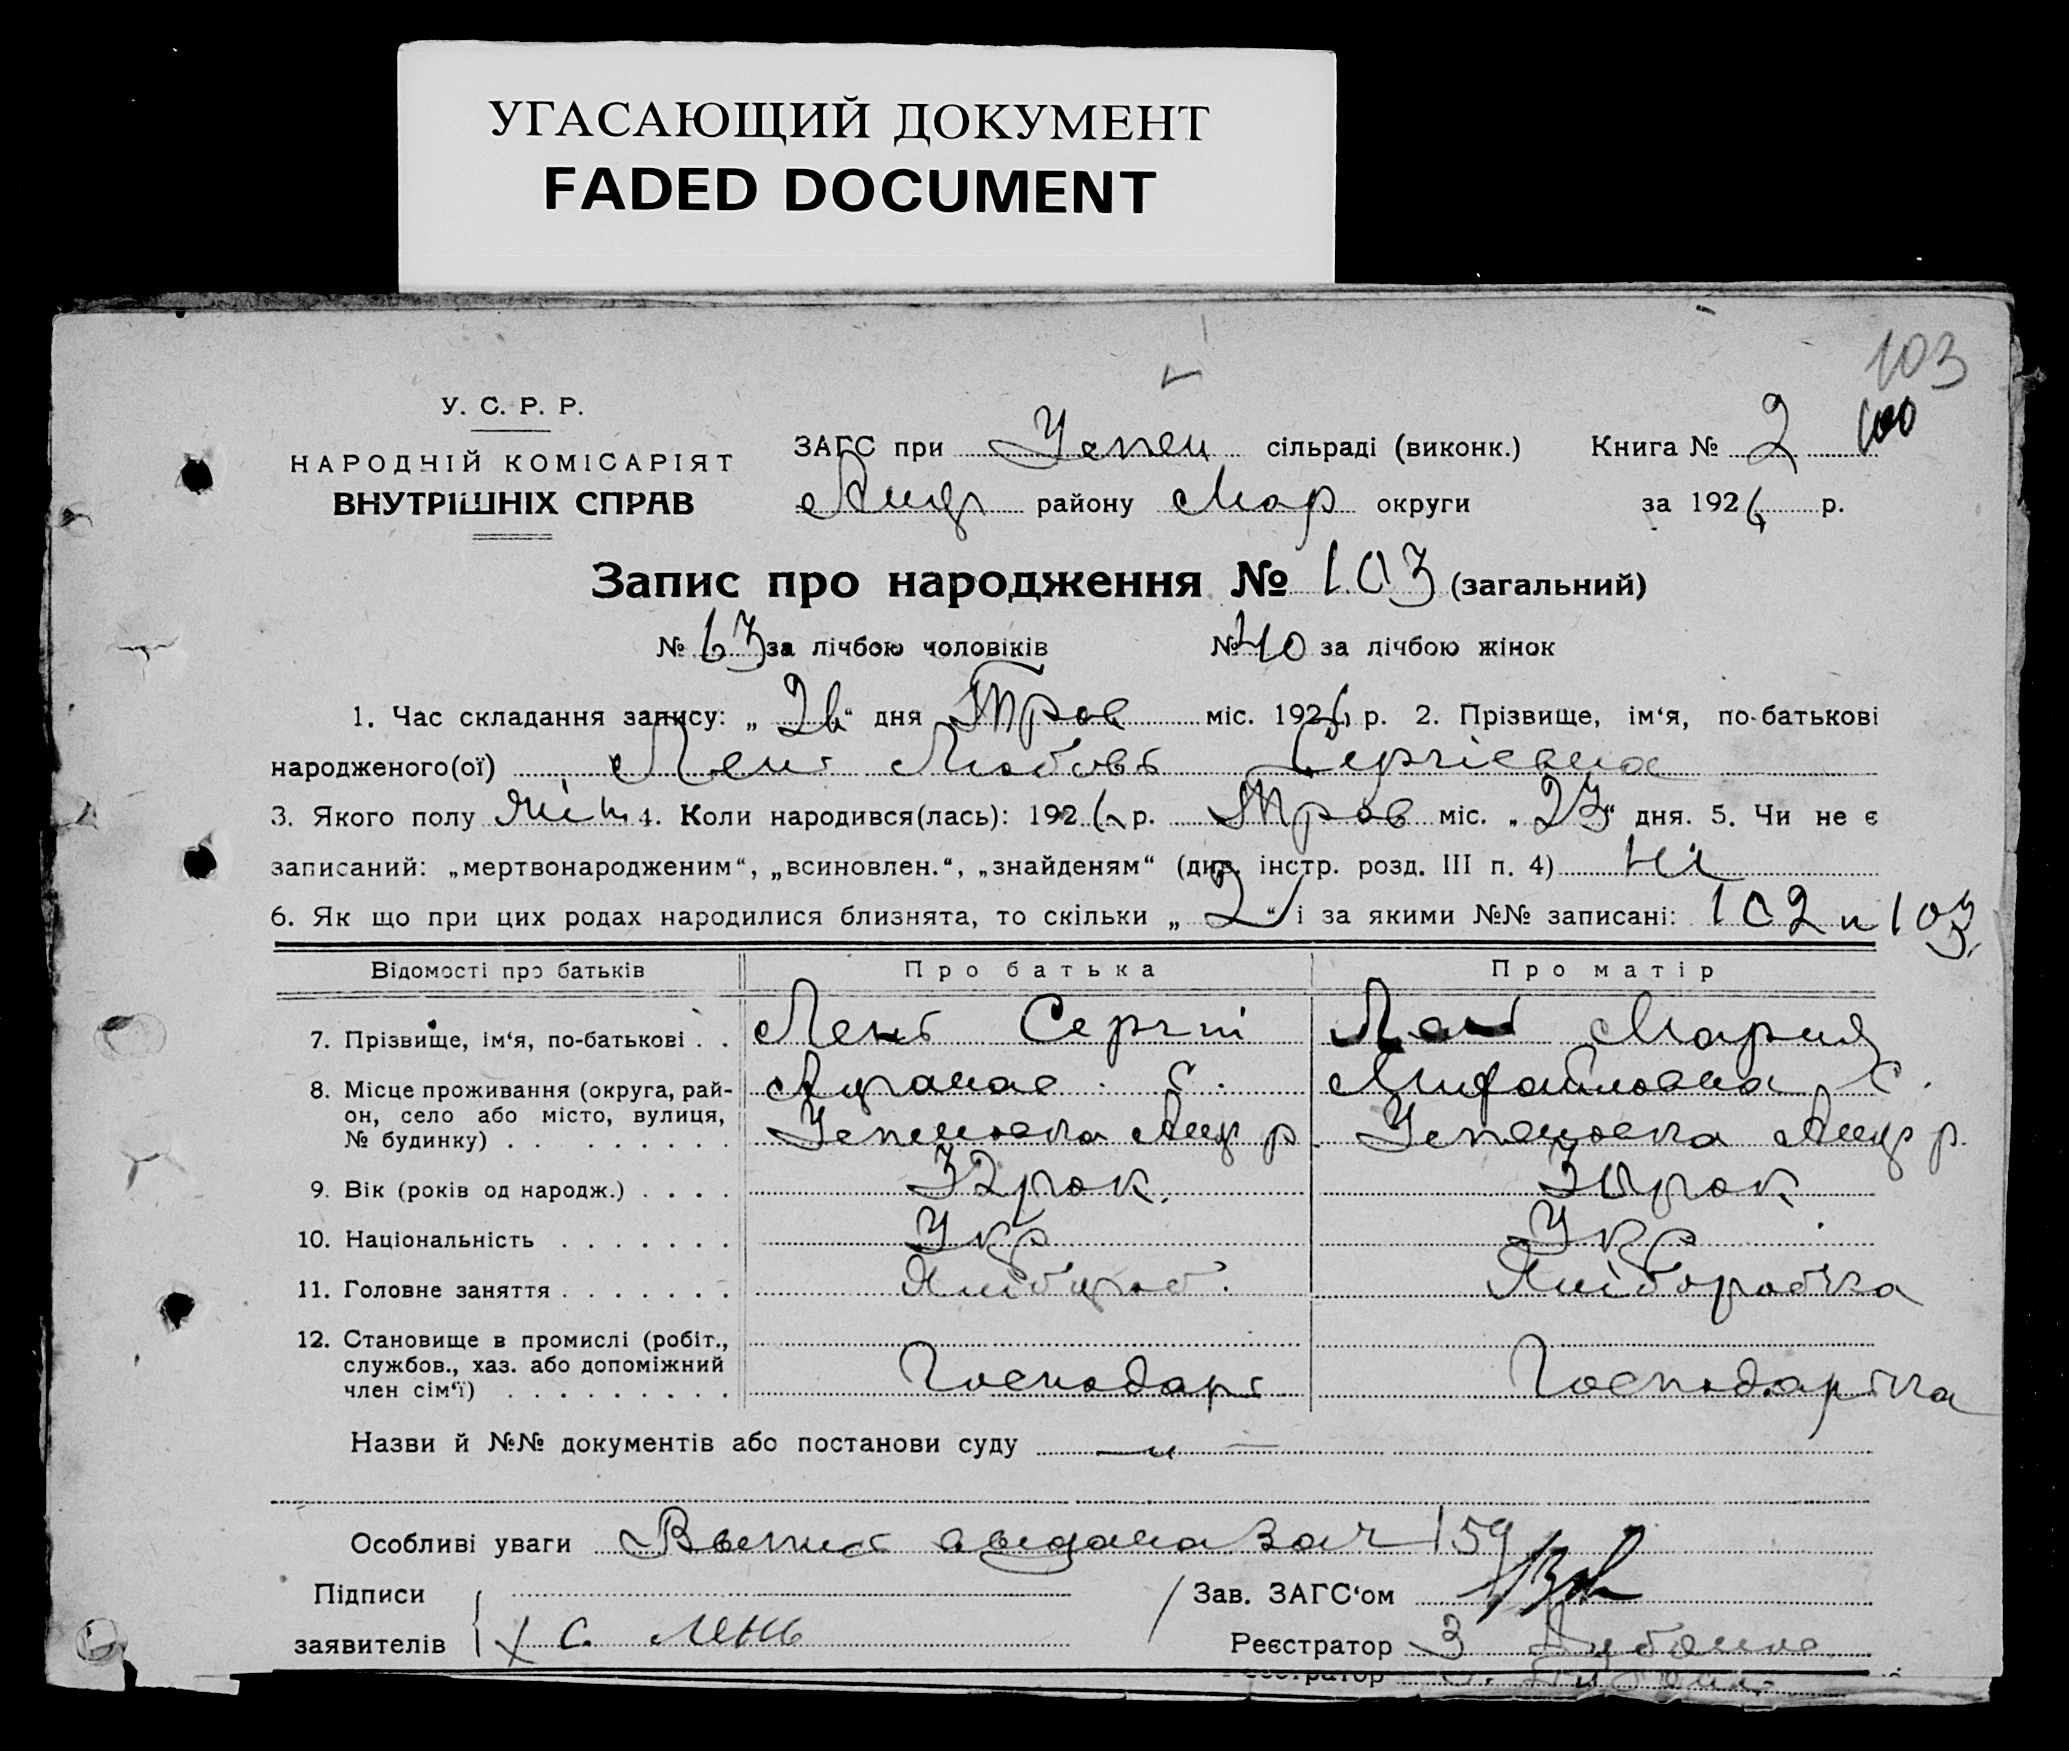 УГАСАЮЩИЙ ДОКУМЕНТ
FADED DOCUMENT
103
100
У. С. Р. Р.
НАРОДНІЙ КОМІСАРІЯТ
ВНУТРІШНІХ СПРАВ
ЗАГС при Успен сільраді (виконк.) Книга № 2
району Мар округи за 1926 р.
Запис про народження № 103 (загальний)
№ 63 за лічбою чоловіків № 40 за лічбою жінок
1. Час складання запису: „ 26 “ дня Трав міс. 1926 р. 2. Прізвище, ім‘я, по-батькові
народженого(ої) Лень Любовь Сергіевна
3. Якого полу жін 4. Коли народився(лась): 1926 р. Трав міс. „ 23 “ дня. 5. Чи не є
записаний: „мертвонародженим“, „всиновлен.“, „знайденям“ (див. інстр. розд. III п. 4) Ні
6. Як що при цих родах народилися близнята, то скільки „ 2 “ і за якими №№ записані: 102 и 103.
Відомості про батьків Про батька Про матір
7. Прізвище, ім‘я, по-батькові . . Лень Сергій Лень Мария
8. Місце проживання (округа, рай- с. Михайловна с.
он, село або місто, вулиця,
№ будинку) . . . . . . . . . Успеновка Анд р. Успеновка Анд р.
9. Вік (років од народж.) . . . . 32 рок. рок
10. Національність . . . . . . . Укр Укр
11. Головне заняття . . . . . . . Хлібороб. Хлібороб́ка
12. Становище в промислі (робіт.,
службов., хаз. або допоміжний
член сім‘ї) . . . . . . . . . Господарь Господарька
Назви й №№ документів або постанови суду — „ —
Особливі уваги 159
Підписи
заявителів С. Лень
Зав. ЗАГС‘ом
Реєстратор З
Реєстратор